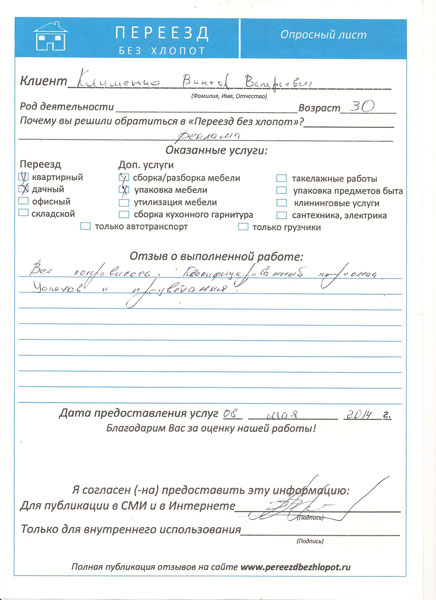 ПЕРЕЕЗД
БЕЗ ХЛОПОТ
Опросный лист
Клиент Клименко Валерьевич
(Фамилия, Имя, Отчество)
Род деятельности Возраст 30
Почему вы решили обратиться в «Переезд без хлопот»?
реклама
Оказанные услуги:
Переезд Доп. услуги
квартирный сборка/разборка мебели такелажные работы
дачный упаковка мебели упаковка предметов быта
офисный утилизация мебели клининговые услуги
складской сборка кухонного гарнитура сантехника, электрика
только автотранспорт только грузчики
Отзыв о выполненной работе:
Все понравилось. Квалифицированный персонал
Успехов и процветания
Дата предоставления услуг 08 мая 2014 г.
Благодарим Вас за оценку нашей работы!
Я согласен (-на) предоставить эту информацию:
Для публикации в СМИ и в Интернете
(Подпись)
Только для внутреннего использования
(Подпись)
Полная публикация отзывов на сайте www.pereezdbezhlopot.ru